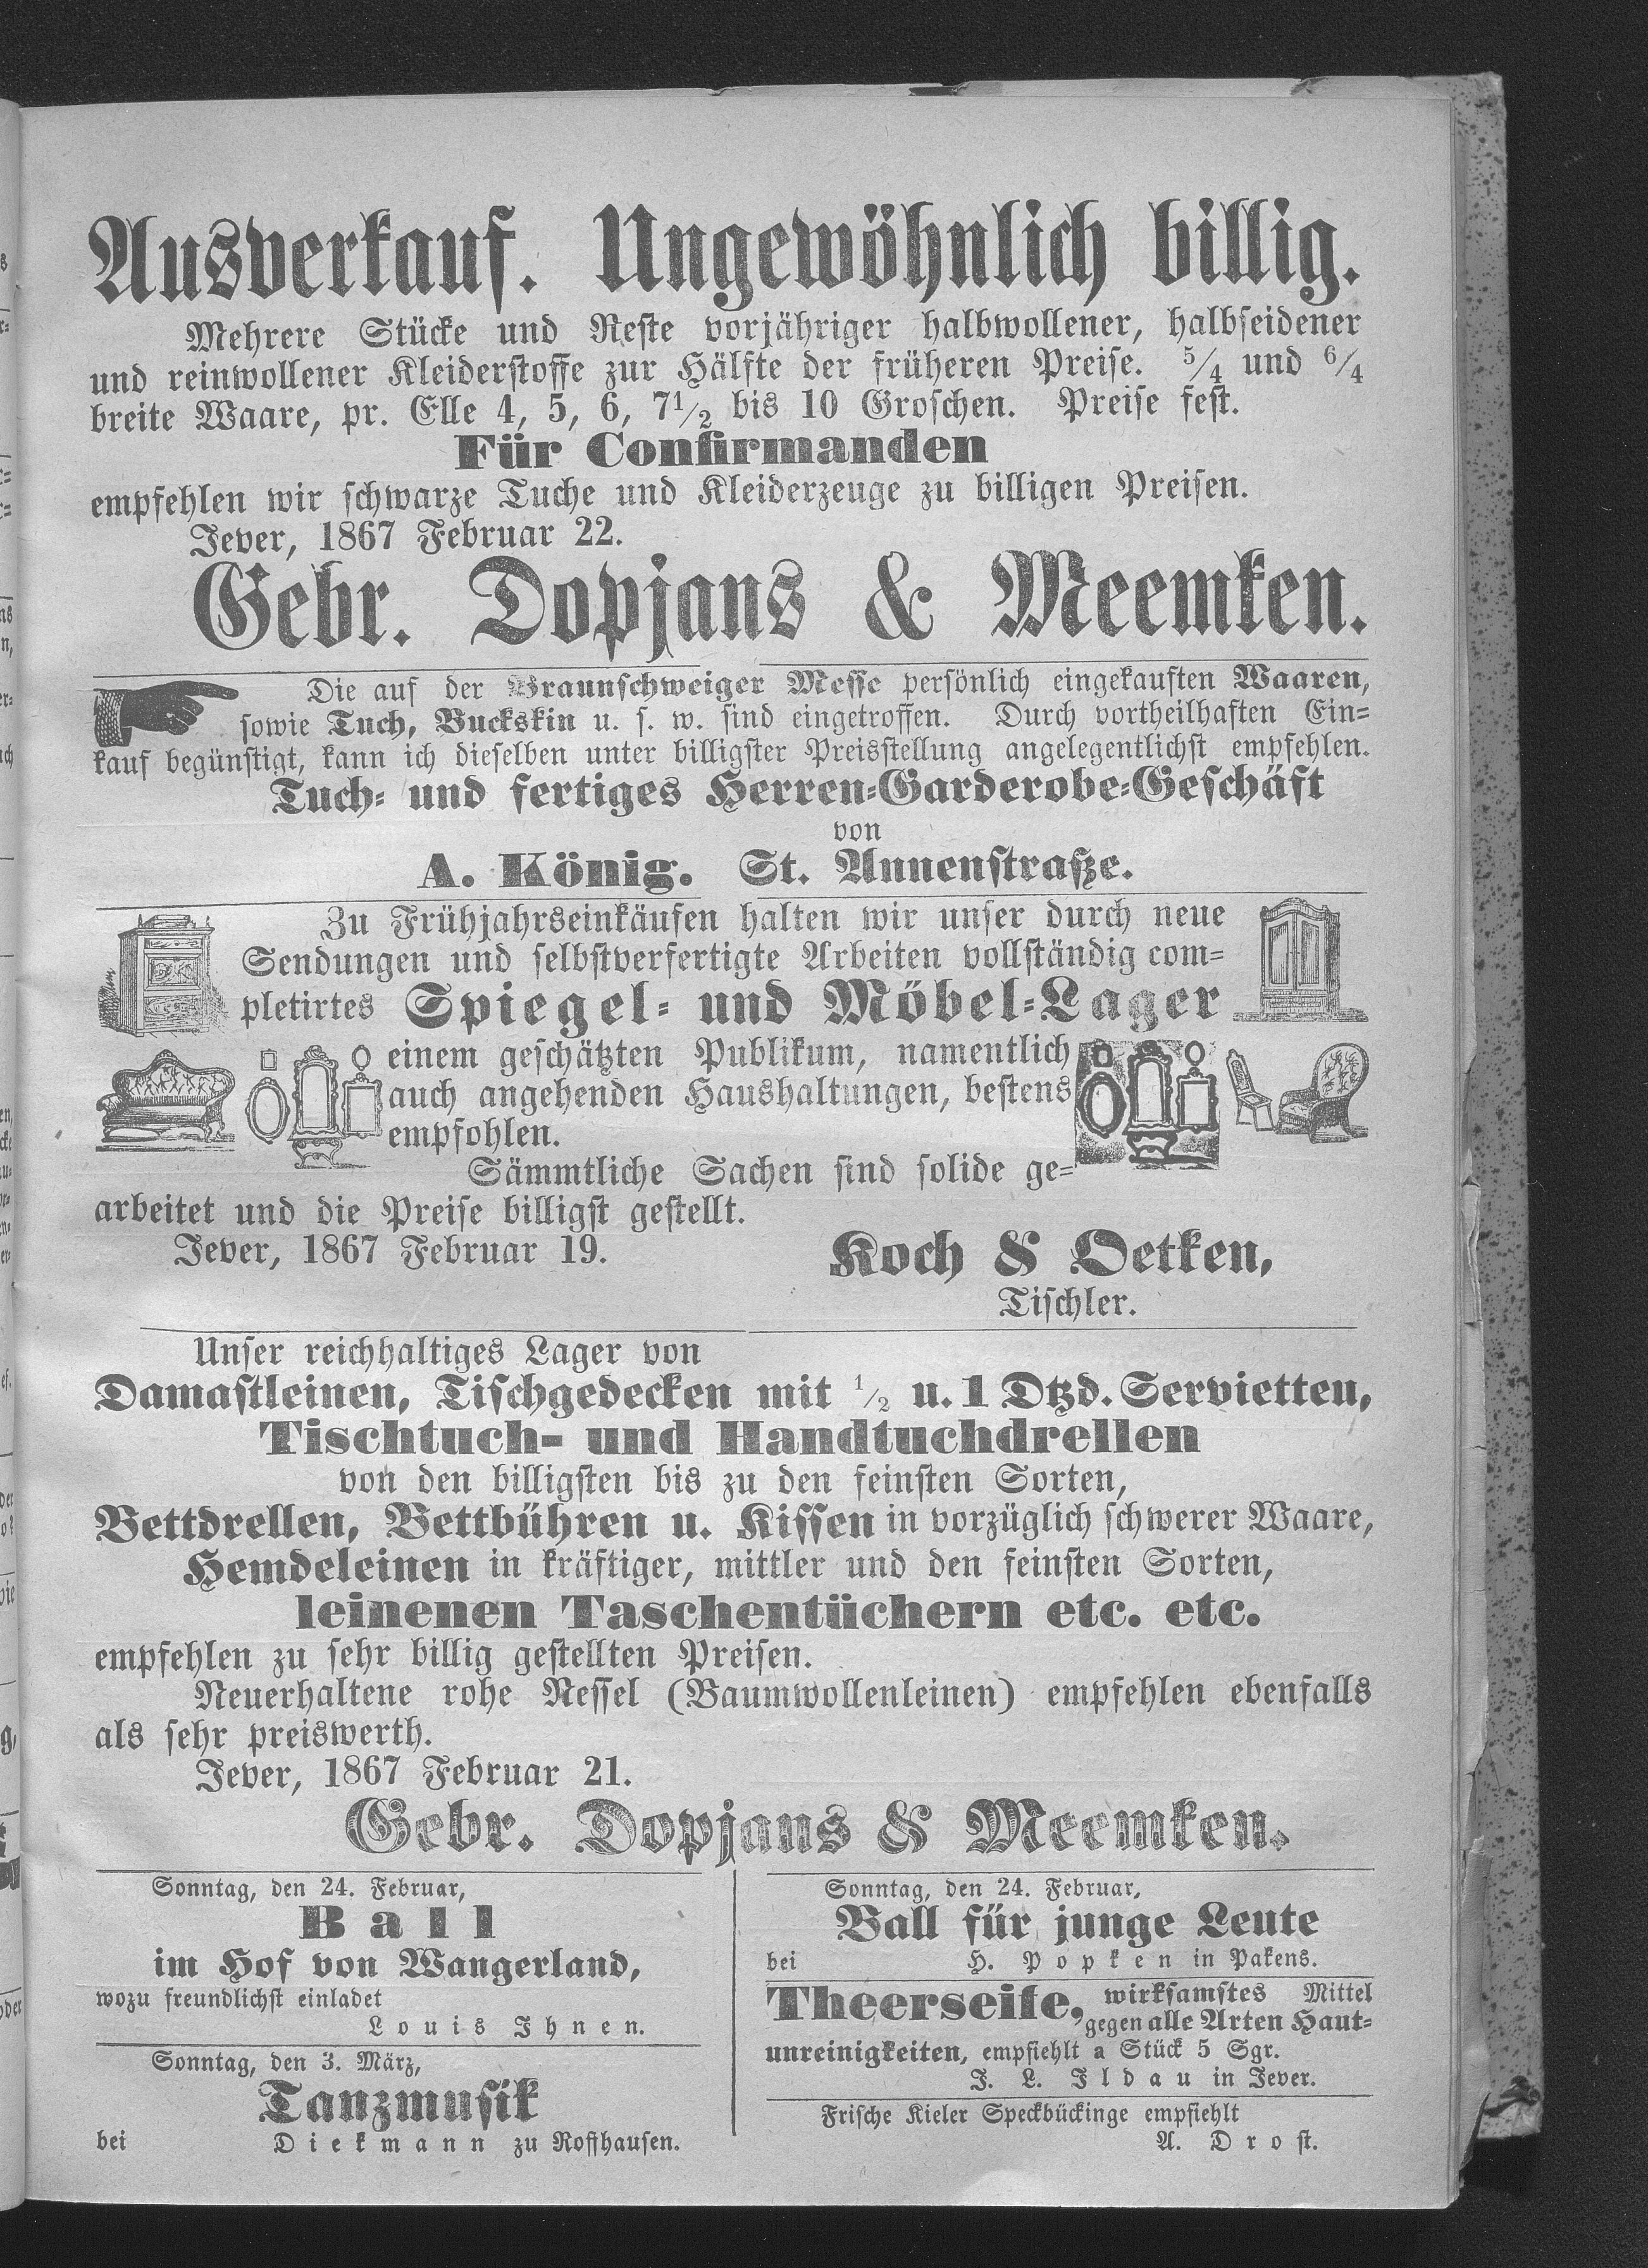 Ausverkauf. Ungewöhnlich billig.
Mehrere Stücke und Reste vorjähriger halbwollener, halbseidener
und reinwollener Kleiderstoffe zur Hälfte der früheren Preise. 5/4 und 6/4
breite Waare, pr. Elle 4, 5, 6, 7 1/2 bis 10 Groschen. Preise fest.
Für Confirmanden
empfehlen wir schwarze Tuche und Kleiderzeuge zu billigen Preisen.
Jever, 1867 Februar 22.
Gebr. Dopjans & Meemken.
Die auf der Braunschweiger Messe persönlich eingekauften Waaren,
sowie Tuch, Buckskin u. s. w. sind eingetroffen. Durch vortheilhaften Ein=
kauf begünstigt, kann ich dieselben unter billigster Preisstellung angelegentlichst empfehlen.
Tuch= und fertiges Herren=Garderobe=Geschäft
von
A. König. St. Annenstraße.
Zu Frühjahrseinkäufen halten wir unser durch neue
Sendungen und selbstverfertigte Arbeiten vollständig com=
pletirtes Spiegel= und Möbel=Lager
einem geschätzten Publikum, namentlich
auch angehenden Haushaltungen, bestens
empfohlen.
Sämmtliche Sachen sind solide ge=
arbeitet und die Preise billigst gestellt.
Jever, 1867 Februar 19.
Koch & Oetken,
Tischler.
Unser reichhaltiges Lager von
Damastleinen, Tischgedecken mit 1/2 u. 1 Dtzd. Servietten,
Tischtuch- und Handtuchdrellen
von den billigsten bis zu den feinsten Sorten,
Bettdrellen, Bettbühren u. Kissen in vorzüglich schwerer Waare,
Hemdeleinen in kräftiger, mittler und den feinsten Sorten,
leinenen Taschentüchern etc. etc.
empfehlen zu sehr billig gestellten Preisen.
Neuerhaltene rohe Nessel (Baumwollenleinen) empfehlen ebenfalls
als sehr preiswerth.
Jever, 1867 Februar 21.
Gebr. Dopjans & Meemken.
Sonntag, den 24. Februar,
Ball
im Hof von Wangerland,
wozu freundlichst einladet
Louis Ihnen.
Sonntag, den 3. März,
Tanzmusik
bei Diekmann zu Roffhausen.
Sonntag, den 24. Februar,
Ball für junge Leute
bei H. Popken in Pakens.
Theerseife, wirksamstes Mittel
gegen alle Arten Haut=
unreinigkeiten, empfiehlt a Stück 5 Sgr.
J. L. Ildau in Jever.
Frische Kieler Speckbückinge empfiehlt
A. Drost.